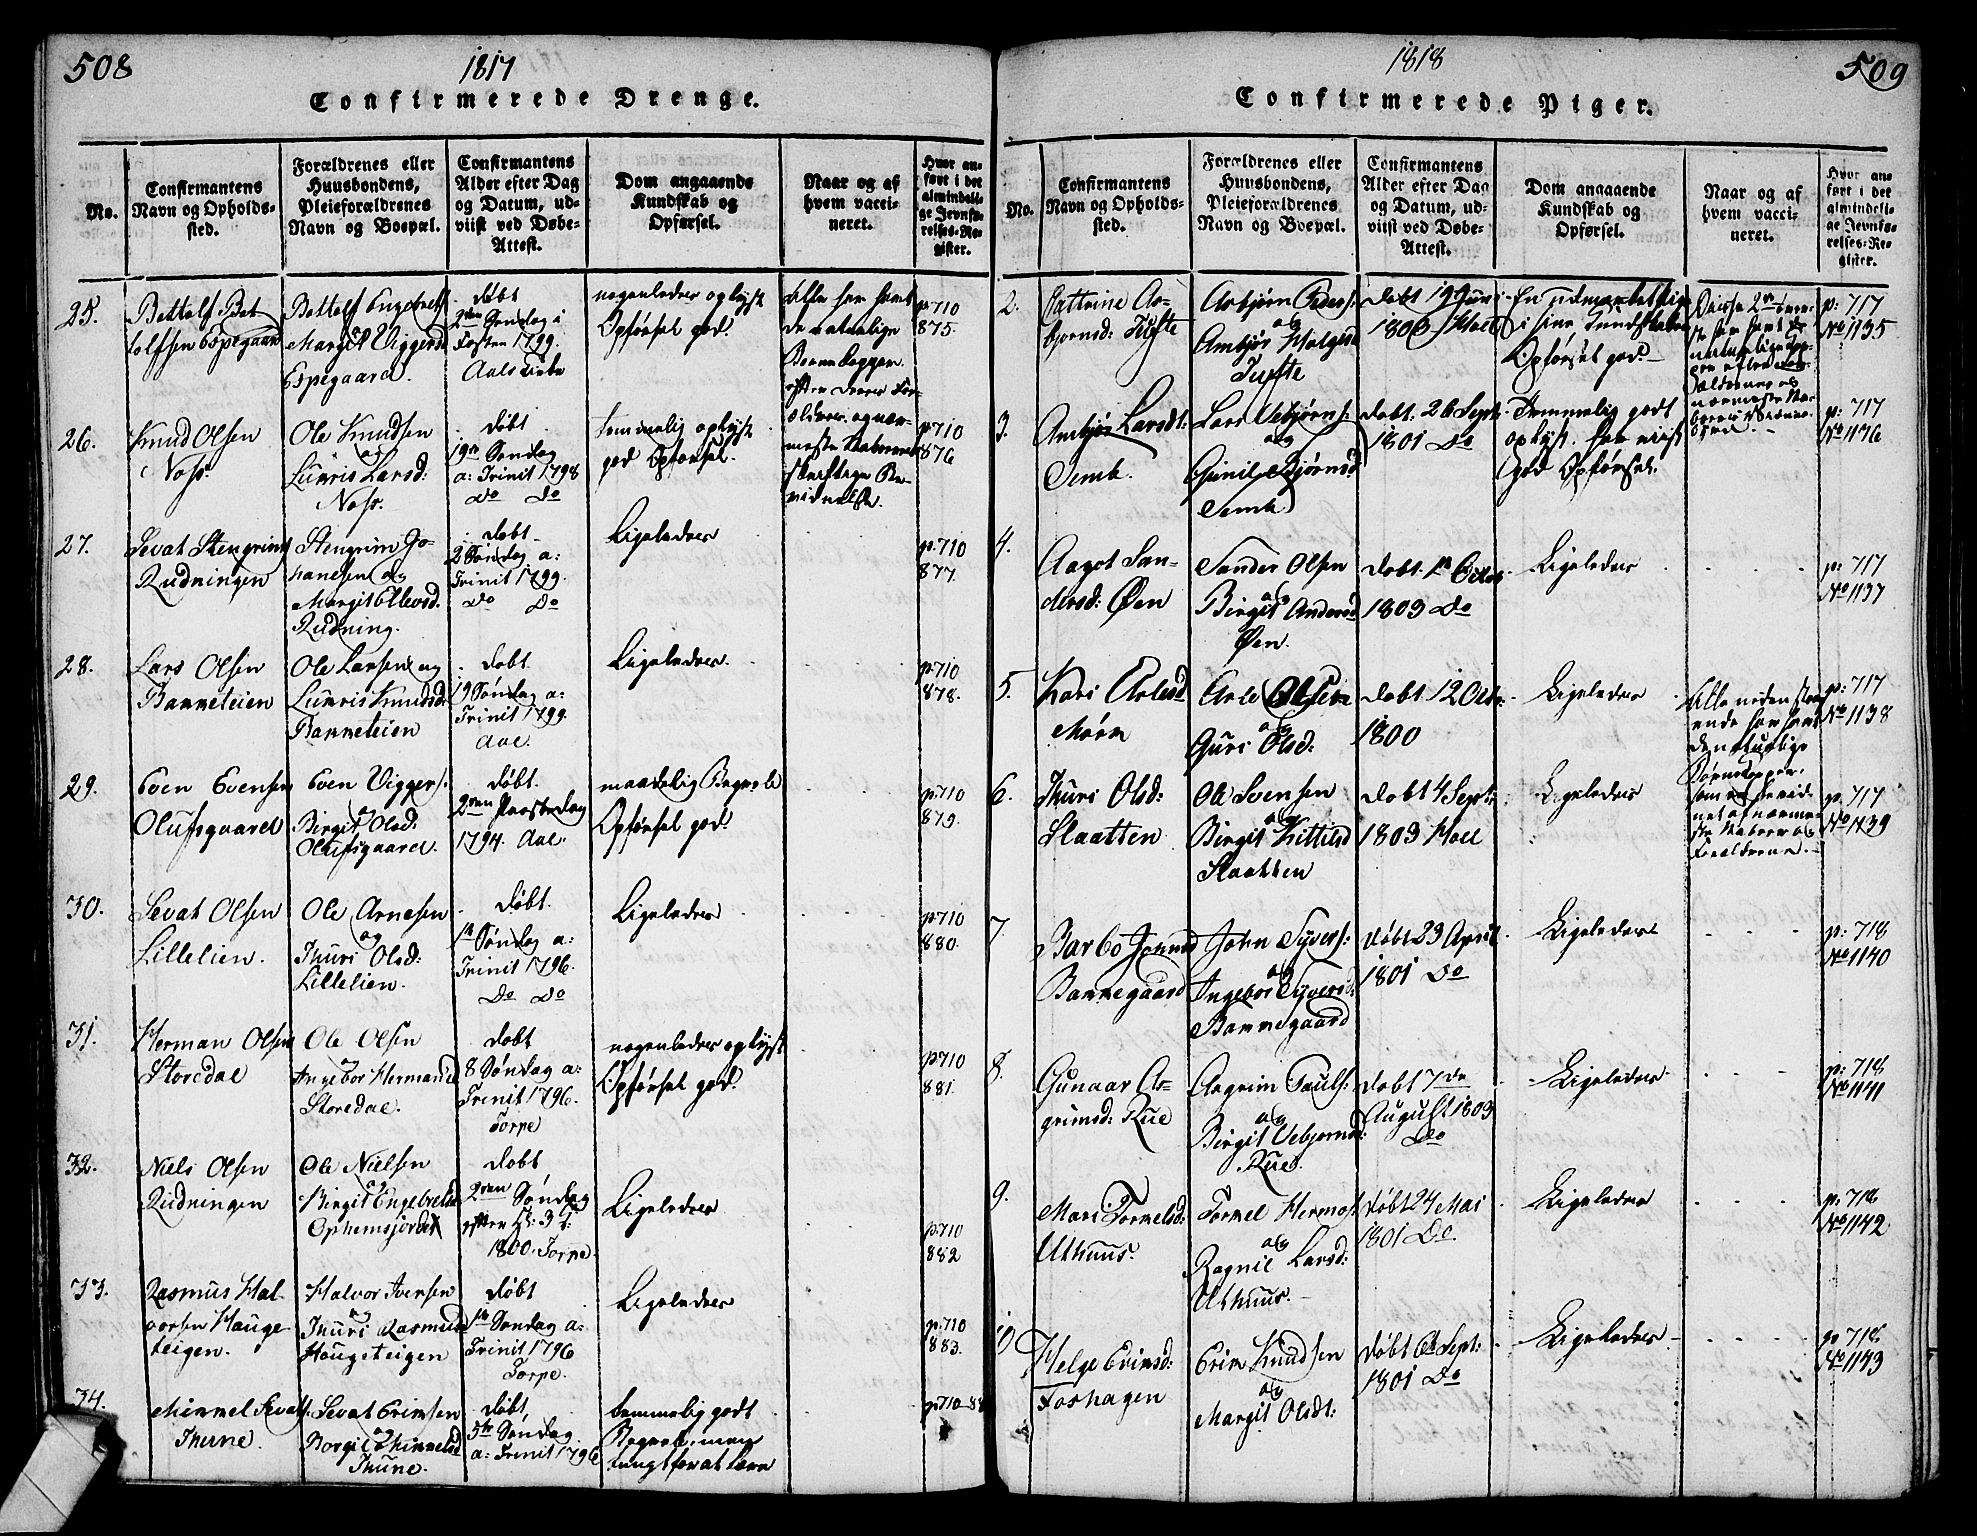 508
1817
Confirmerede Drenge.
No.
Confirmantens
Navn og Opholds-
sted.
Forældrenes eller
Huusbondens,
Pleieforældrenes
Navn og Boepæl.
Confirmantens
Alder efter Dag
og Datum, ud-
viist ved Døbe-
Attest.
Dom angaaende
Kundskab og
Opførsel.
Naar og af
hvem vacci-
neret.
Hvor an-
ført i det
almindeli-
ge Jevnfø-
relses-Re-
gister.
25.
Bettolf Bet
tolfsen Espegaard
Bettolf Engebrets:
Margit Viggersd
Espegaard.
døbt
2den Søndag i
Fasten 1799.
Aals Kirke
nogenledes oplyst
Opførsel god.
Alle har havt
de naturlige
Børnekopper
efter deres For-
ældres og nær-
meste Naboers
skriftlige Be-
vidnelse.
p 710
875.
26.
Knud Olsen
Noss.
Ole Knudsen
og
Lunris Larsd:
Noss.
døbt
19de Søndag
a: Trinit 1798
Do Do
temmelig oplyst
god Opførsel.
p 710
876
27.
Sevat Stengrims
Rudningen
Stengrim Jo-
hanesen og
Margit Ellevsd.
Rudning.
døbt
2 Søndag a:
Trinit 1799.
Do Do
Ligeledes
p. 710
877.
28.
Lars Olsen
Bammeteien
Ole Larsen og
Lunris Knudsd:
Bammeteien
døbt
19 Søndag a:
Trinit 1799.
Aal.
Ligeledes.
p. 710
878.
29.
Even Evensen
Olufsgaard
Even Vigger:
og
Birgit Olsd:
Olufsgaard.
døbt.
2den Paaskedag
1794. Aal.
maadelig Begreb
Opførsel god.
p. 710
879.
30.
Sevat Olsen
Lillelien.
Ole Arnesen
og
Thuri Olsd:
Lillelien.
døbt.
1ste Søndag a:
Trinit 1796.
Do Do
Ligeledes
p 710
880.
31.
Herman Olsen
Storedal
Ole Olsen
og
Ingebor Hermansd
Storedal.
døbt
8 Søndag a:
Trinit 1796.
Torpe
nogenledes oplyst
Opførsel god.
p 710
881.
32.
Niels Olsen
Rudningen
Ole Nielsen
og
Birgit Engebretsd
Ophemsjordet
døbt
2den Søndag
efter H: 3 K:
1800. Torpe.
Ligeledes
p 710
882
33.
Rasmus Hal-
vorsen Hauge-
teigen.
Halvor Iversen
og
Thuri Rasmusd
Haugeteigen
døbt
1ste Søndag a:
Trinit 1796
Torpe.
Ligeledes
p 710
883.
34.
Himmel Sevats:
Thune.
Sevat Erimsen
og
Borgil Himmelsd
Thune.
døbt,
5te Søndag
a: Trinit 1796
temmelig godt
Begreb, men
tungt for at lære
p 710-88
1818
509
Confirmerede Piger.
No.
Confirmantens
Navn og Opholds-
sted.
Forældrenes eller
Huusbondens,
Pleieforældrenes
Navn og Boepæl.
Confirmantens
Alder efter Dag
og Datum, ud-
viist ved Døbe-
Attest.
Dom angaaende
Kundskab og
Opførsel.
Naar og af
hvem vacci-
neret.
Hvor an-
ført i det
almindeli-
ge Jevnfø-
relses-Re-
gister.
2.
Cattrine As-
bjørnsd: Tufte
Asbjørn Peders:
og
Ambjør Helgesd
Tufte
døbt 19 Juni
1803 Hoel
En udmærket Pige
i sine Kundskaber
Opførsel god.
Disse 2de
har havt de
naturlige Kop-
per efter For-
ældrenes og
nærmeste Na-
boers
p: 717
No 1135
3.
Ambjør Larsdt:
Semb.
Lars Vebjørns:
og
Gunil Bjørnsd
Semb
døbt. 26 Sept:
1801 Do
Temmelig godt
oplyst. har viist
god Opførsel.
p: 717
No 1136
4.
Aagot San-
dersd: Øen
Sander Olsen
og
Birgit Andersd
Øen.
døbt. 1te Octob
1803 Do
Ligeledes
p: 717
No 1137
5.
Kari Arlesd
Mørm
Arle Olsen
og
Guri Olsd:
døbt 12 Octr:
1800
Ligeledes
Alle nedenstaa-
ende har havt
de naturlige
Børnekopper,
som er bevid-
net af nærme-
ste Naboer og
Forældrene.
p: 717
No 1138
6.
Thuri Olsd:
Slaatten
Ole Svensen
og
Birgit Kittilsd
Slaatten
døbt 4 Sept:
1803 Hoel
Ligeledes
p: 717
No 1139
7.
Barbo Jonsd
Bammegaard
John Syvers:
og
Ingebor Syversd:
Bammegaard
døbt 23 April
1801 Do
Ligeledes
p: 718
No 1140
8.
Gunaar As-
grimsd: Rue
Asgrim Pauls:
og
Birgit Vebjørnsd:
Rue.
døbt 7de
August 1803
Do
Ligeledes
p: 718
No 1141
9.
Mari Tormelsd:
Uthuus.
Tormel Hermos:
og
Ragnil Larsd:
Uthuus.
døbt 24 Mai
1801 Do.
Ligeledes
p: 718
No 1142
10.
Helge Erimsd:
Foshagen
Erim Knudsen
og
Margit Olsdt:
døbt 6te Sept:
1801 Do
Ligeledes
p: 718
No 1143